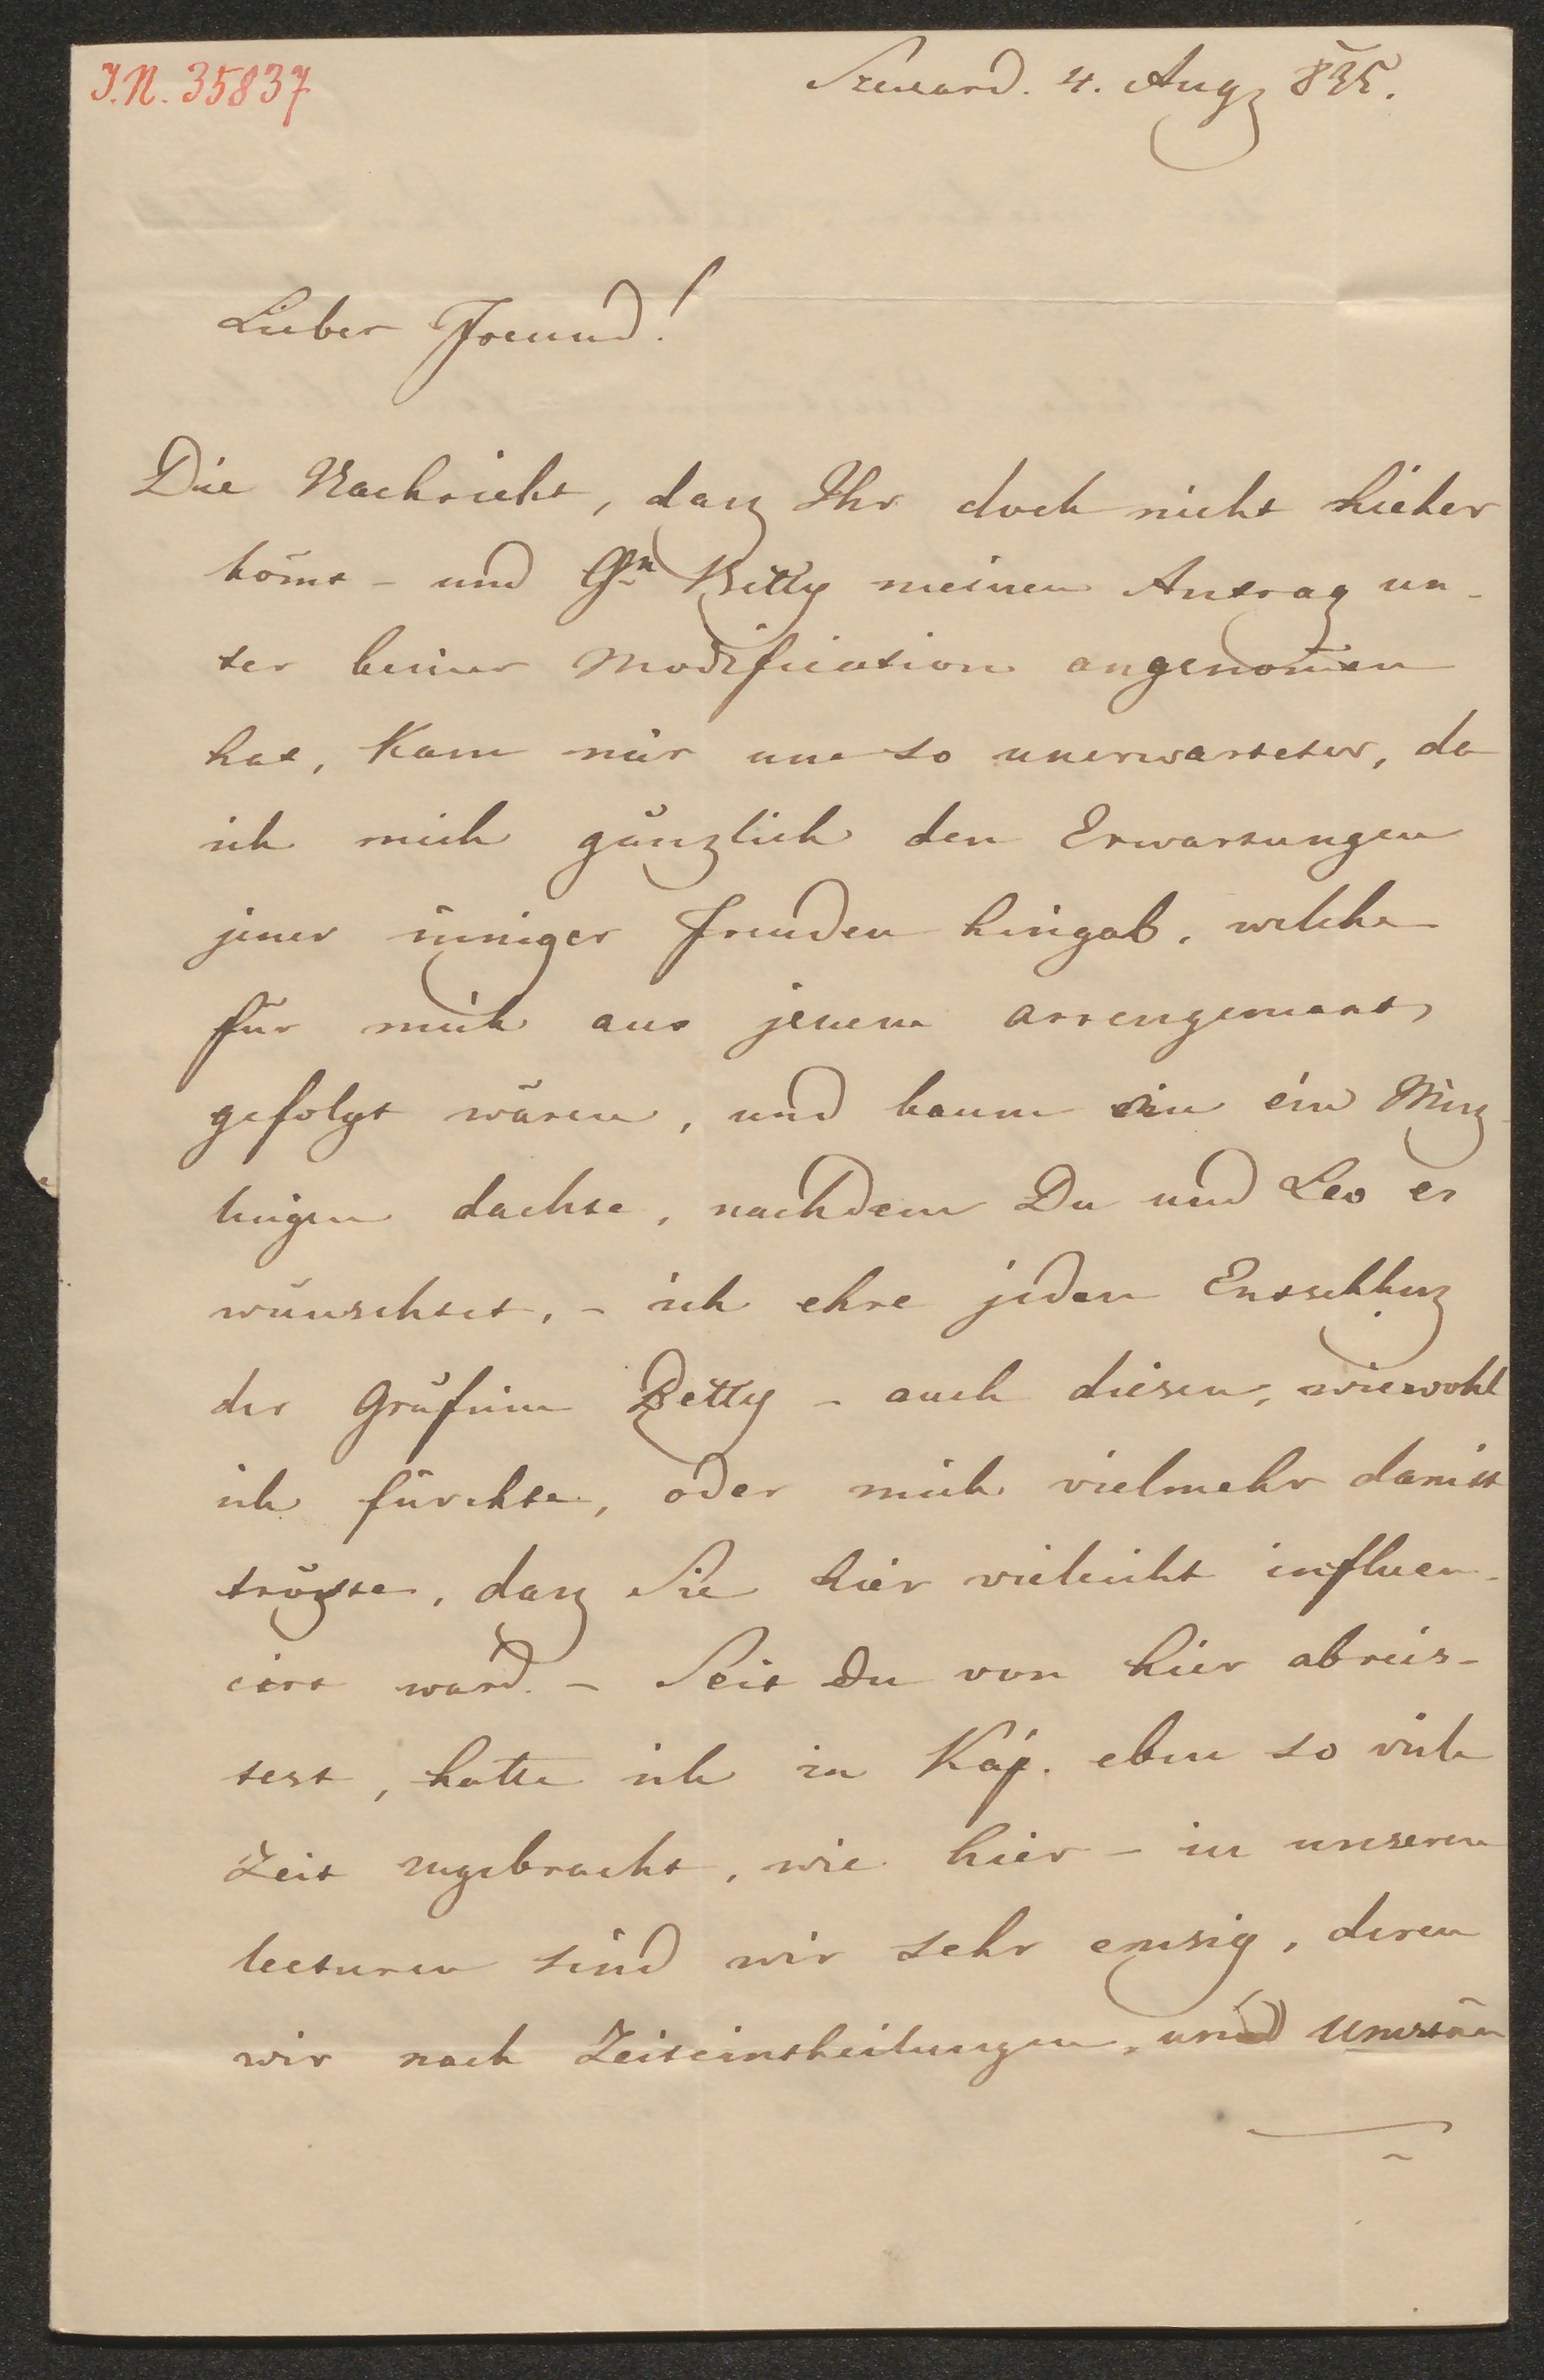 J.N. 35837
Szexard. 4. Aug 835.
Lieber Freund!
Die Nachricht, dasz Ihr doch nicht hieher
kom̄t – und Gfn Betty meinen Antrag un-
ter keiner Modification angenom̄en
hat, kam mir um so unerwarteter, da
ich mich gänzlich den Erwartungen
jener inniger Freuden hingab, welche
für mich aus jenem arrengemant
gefolgt wären, und kaum an ein Misz-
lingen dachte, nachdem Du und Leo es
wünschtet, – ich ehre jeden Entschlusz
der Gräfinn Betty – auch diesen, wiewohl
ich fürchte, oder mich vielmehr damitt
tröste, dasz Sie hier vieleicht influen-
cirt ward. – Seit Du von hier abreis-
test, hatte ich in Káj. eben so viele
Zeit zugebracht, wie hier – in unseren
lecturen sind wir sehr emsig, deren
wir nach Zeiteintheilungen, und Umstän